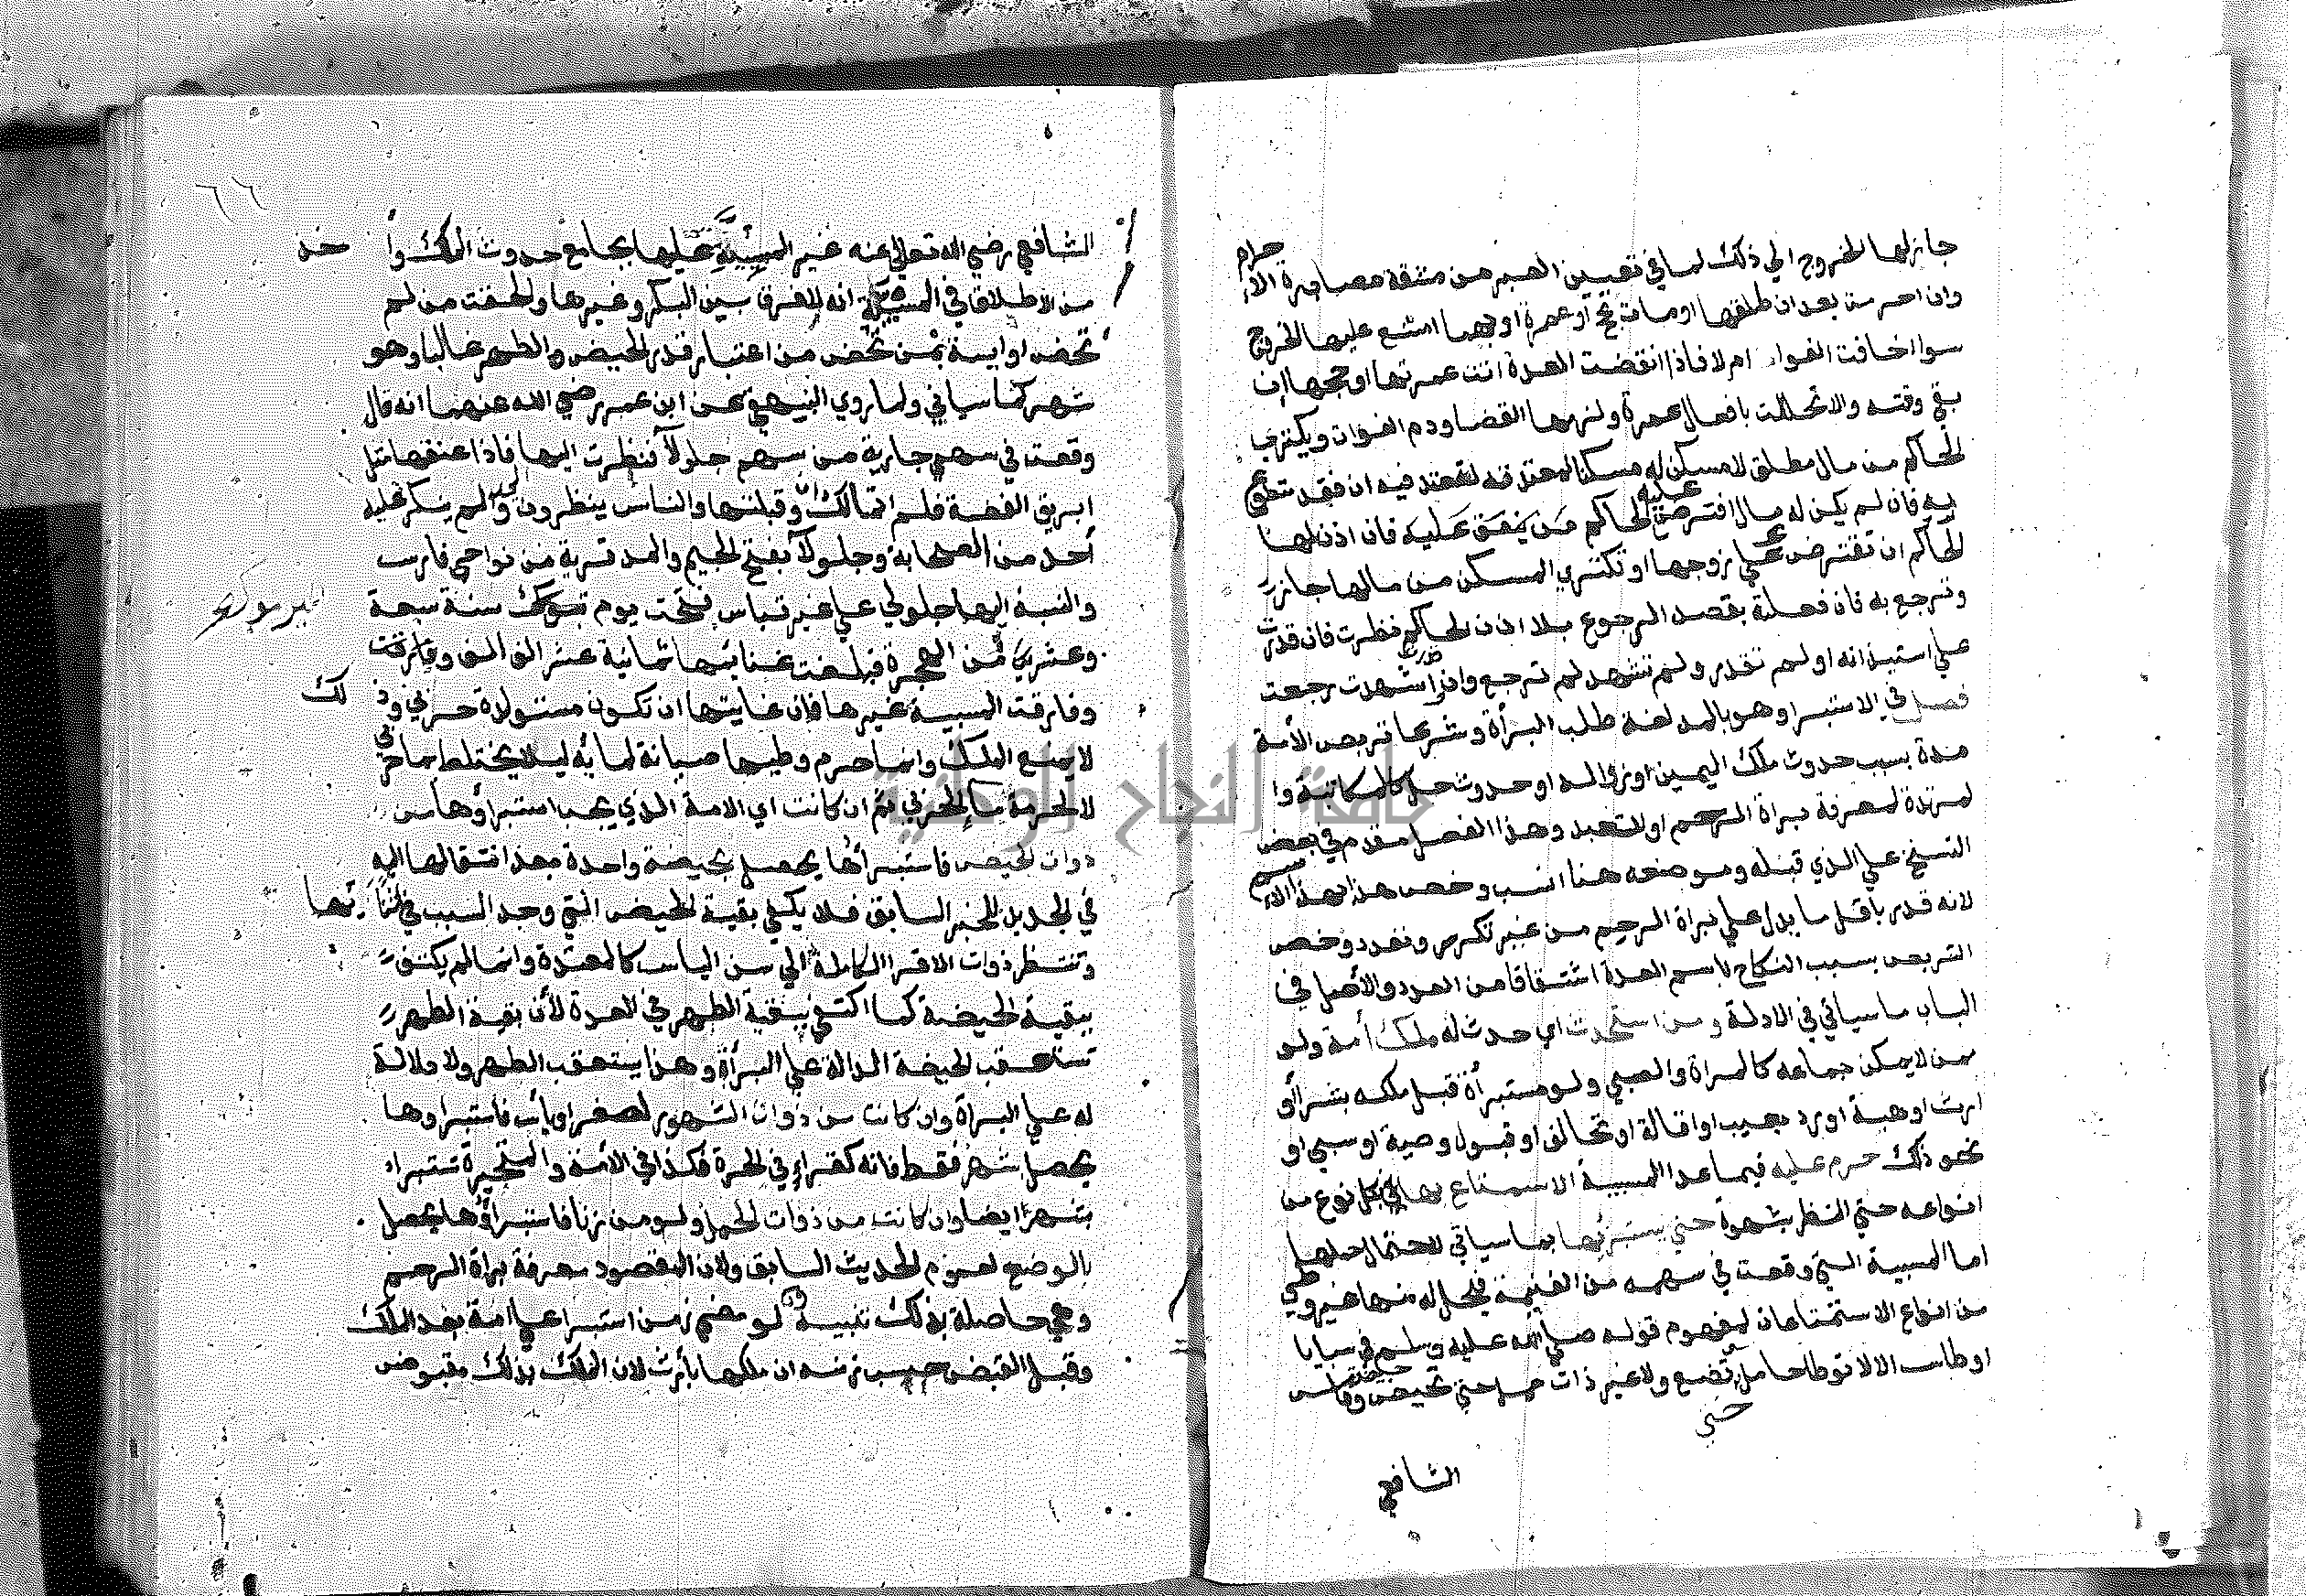 جاز لها الخروج الي ذلك لما في تعيين الصبر من مشقة مصابرة الاحرام
وان احرمت بعد ان طلقها او مات بحج او عمرة او بهما امتنع عليها الخروج
سوا اخافت الفوات ام لا فاذا انقضت العدة اتت عمرتها او حجها ان
بقي وقته والا تحللت بافعال عمرة ولزمها القضا ودم الفوات ويكتري
الحاكم من مال مطلق لا مسكن له مسكنا لمعتدته لتعتد فيه ان فقد متطوع
به فان لم يكن له مال اقترض عليه الحاكم فان اذن لها
الحاكم ان تقترض علي زوجها او تكتري المسكن من مالها جاز
وترجع به فان فعلته بقصد الرجوع بلا اذن الحاكم نظرت فان قدرت
علي استيذانه او لم تقدر ولم تشهد لم ترجع وان قدرت اشهدت رجعت
فصل في الاستبرا وهو بالمد لغة طلب البرأة وشرعا تربص الأمة
مدة بسبب حدوث ملك اليمين او زواله او حدوث حل كالمكاتبة وا
لمرتدة لمعرفة براة الرحم او للتعبد وهذا الفصل مقدم في بعض
النسخ علي الذي قبله وموضعه هنا انسب وخص هذا بهذا الاسم
لانه قدر باقل ما يدل علي براة الرحم من غير تكرر وتعدد وخص
التربص بسبب النكاح باسم العدة اشتقاقا من العدد والأصل في
الباب ما سياتي في الادلة ومن استحدث اي حدث له ملك أمة ولو
ممن لا يمكن جماعه كالمراة والصبي ولو مستبرأة قبل ملكه بشرا أو
ارث او هبة او رد بعيب او اقالة او تحالف او قبول وصية او سبي او
نحو ذلك حرم عليه فيما عدا المسبية الاستمتاع بها بكل نوع من
انواعه حتي النظر بشهوة حتي يستبرئها بما سياتي لاحتمال حملها
اما المسبية التي وقعت في سهمه من الغنيمة فيحل له منها غير وطي
من انواع الاستمتاعات لمفهوم قوله صلي الله عليه وسلم في سبايا
اوطاس الا لا توطا حامل حتي تضع ولا غير ذات حمل حتي تحيض حيضة وقاس
الشافعي
٦٦
الشافعي رضي الله تعالي عنه غير المسبية عليها بجامع حدوث الملك واخذ
من الاطلاق في المسبية انه لا فرق بين البكر وغيرها والحقت من لم
تحض او ايسة بمن تحض من اعتبار قدر الحيض والطهر غالبا وهو
شهر كما سياتي ولما روي البيهقي عن ابن عمر رضي الله عنهما انه قال
وقعت في سهمي جارية من سهم جلولآ فنظرت اليها فاذا عنقها مثل
ابريق الفضة فلم اتمالك ان قبلتها والناس ينظرون ولم ينكر عليه
أحد من الصحابة وجلولآ بفتح الجيم والمد قرية من نواحي فارس
والنسبة اليها جلولي علي غير قياس فتحت يوم سنة سبعة
وعشرين من الهجرة فبلغت غنايئمها ثمانية عشر الف الف
وفارقت المسبية غيرها فان غايتها ان تكون مستولدة حربي وذلك
لا يمنع الملك وانما حرم وطيها صيانة لمايه ليلا يختلط بماحربي
لا لحرمة مآ الحربي ثم ان كانت اي الامة الذي يجب استبراؤها من
ذوات الحيض فاستبراؤها يحصل بحيضة واحدة بعد انتقالها اليه
في الجديد للخبر السابق فلا يكفي بقية الحيض التي وجد السبب في اثنائها
وتنتظر ذوات الاقرا الكاملة الي سن الياس كالمعتدة وانما لم يكتف
ببقية الحيضة كما اكتفي ببقية الطهر في العدة لأن بقية الطهر
تستعقب الحيضة الدالة علي البرأة وهذا يستعقب الطهر ولا دلالة
له علي البرأة وان كانت من ذوات الشهور لصغر او يأس فاستبراوها
يحصل بشهر فقط فانه كقرء في الحرة فكذا في الأمة والمتحيرة تستبرا
بشهر ايضا وان كانت من ذوات الحمل ولو من زنا فاستبراؤها يحصل
بالوضع لعموم الحديث السابق ولان المقصود معرفة براة الرحم
وهي حاصلة بذلك تنبيه لو مضي زمن استبرا علي امة بعد الملك
وقبل القبض حسب زمنه ان ملكها بأرث لان الملك بذلك مقبوض